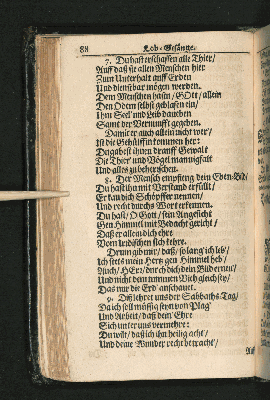 88 Lob-Gesänge.
7. Du hast erschaffen alle Thier/
Auff daß sie allen Menschen hier
Zum Unterhalt auff Erden
Und dienstbar mögen werden.
Dem Menschen hastu / GOtt / allein
Den Odem selbst geblasen ein /
Ihm Seel und Leib daneben
Samt der Vernunfft gegeben.
Damit er auch allein nicht wer /
Ist die Gehülffin kommen her:
Du gabest ihnen drauff Gewalt
Die Thier und Vögel mannigfalt
Und alles zu beherschen.
8. Der Mensch empfieng dein Eben-Bild /
Du hast ihn mit Verstand erfüllt /
Er kan dich Schöpffer nennen /
Und recht durchs Wort erkennen.
Du hast / O Gott / sein Angesicht
Gen Himmel mit Bedacht gericht /
Daß er allein dich ehre
Vom Irrdischen sich kehre.
Drum gib mir / daß / so lang' ich leb /
Ich stets mein Hertz gen Himmel heb /
Auch / Herr / durch dich dein Bild erneu /
Und nicht dem tummen Vieh gleich sey /
Das nur die Erd' anschauet.
9. Diß lehret uns der Sabbaths-Tag /
Da ich soll müssig seyn von Plag'
Und Arbeit / daß dein Ehre
Sich unter uns vermehre:
Du wilt / daß ich ihn heilig acht /
Und deine Wunder recht betracht /
Auff